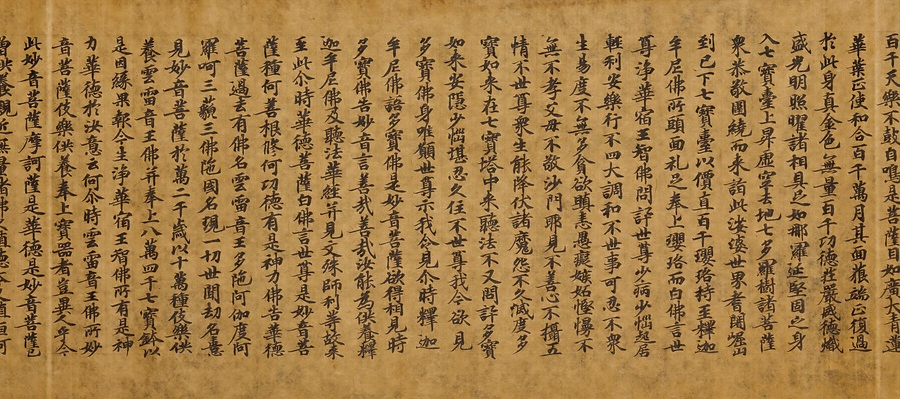 百千天樂不鼓自鳴是菩薩目如廣大青蓮
華葉正使和合百千萬月其面貌端正復過
於此身真金色無量百千功德莊嚴威德熾
盛光明照曜諸相具足如那羅延堅固之身
入七寶臺上昇虛空去地七多羅樹諸菩薩
衆恭敬圍繞而來詣此娑婆世界耆闍崛山
到已下七寶臺以價直百千瓔珞持至釋迦
牟尼佛所頭面礼足奉上瓔珞而白佛言世
尊淨華宿王智佛問訊世尊少病少惱起居
輕利安樂行不四大調和不世事可忍不衆
生易度不無多貪欲瞋恚愚癡嫉妬慳慢不
無不孝父母不敬沙門耶見不善心不攝五
情不世尊衆生能降伏諸魔怨不久滅度多
寶如來在七寶塔中來聽法不又問訊多寶
如來安隱少惱堪忍久住不世尊我今欲見
多寶佛身唯願世尊示我令見尒時釋迦
牟尼佛語多寶佛是妙音菩薩欲得相見時
多寶佛告妙音言善哉善哉汝能爲供養釋
迦牟尼佛及聽法華經并見文殊師利等故來
至此尒時華德菩薩白佛言世尊是妙音菩
薩種何善根修何功德有是神力佛告華德
菩薩過去有佛名雲雷音王多陁阿伽度阿
羅呵三藐三佛陁國名現一切世間劫名憙
見妙音菩薩於萬二千歲以十萬種伎樂供
養雲雷音王佛并奉上八萬四千七寶鉢以
是因縁果報今生淨華宿王智佛所有是神
力華德於汝意云何尒時雲雷音王佛所妙
音菩薩伎樂供養奉上寶器者豈異人乎今
此妙音菩薩摩訶薩是華德是妙音菩薩已
曾供養親近無量諸佛久殖德本又值恒河